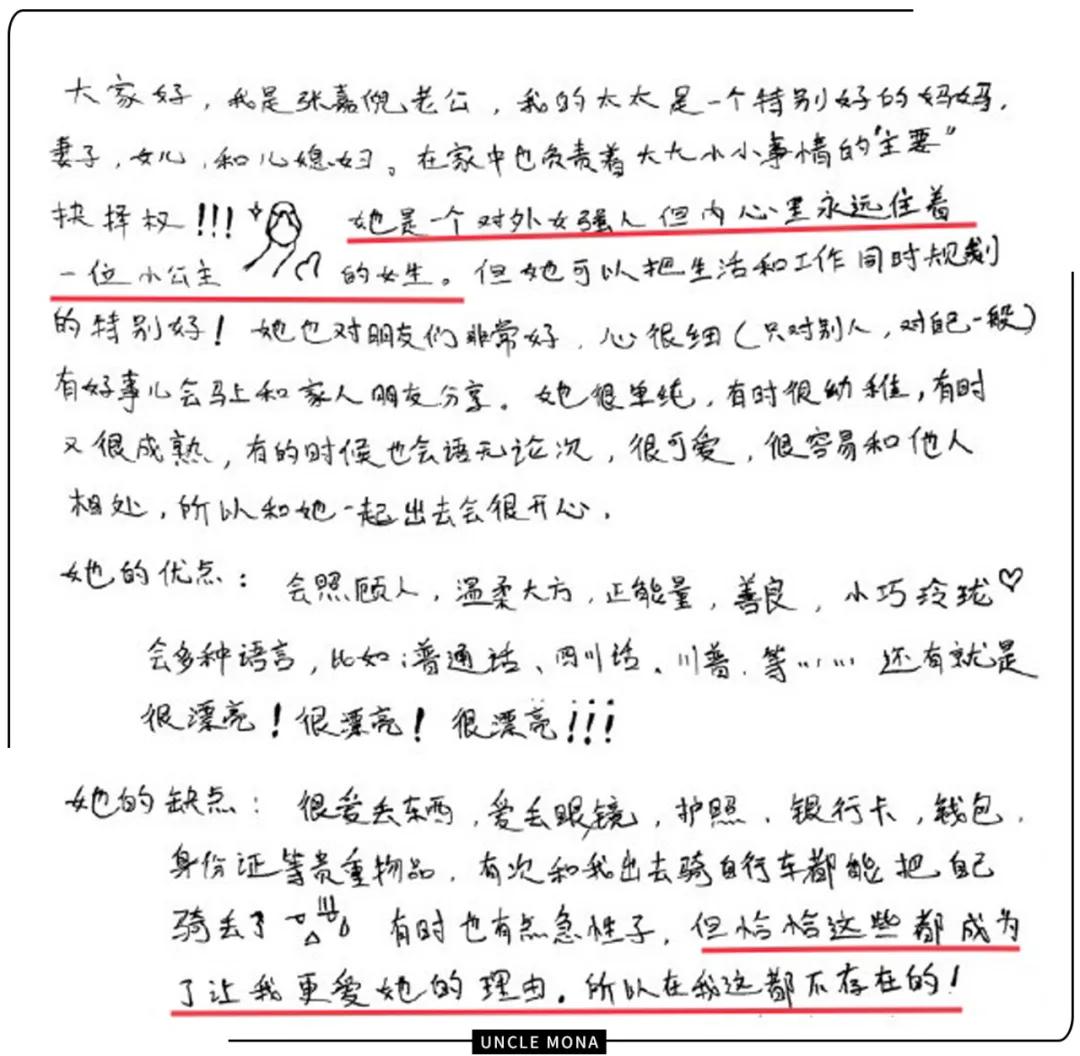 大家好，我是张嘉倪老公，我的太太是一个特别好的妈妈，
妻子，女儿，和儿媳妇。在家中也负责着大大小小事情的“主要”
抉择权!!! 她是一个对外女强人但内心里永远住着
一位小公主 的女生。但她可以把生活和工作同时规划
的特别好！她也对朋友们非常好，心很细（只对别人，对自己一般）
有好事儿会马上和家人朋友分享。她很单纯，有时很幼稚，有时
又很成熟，有的时候也会语无论次，很可爱，很容易和他人
相处，所以和她一起出去会很开心，
她的优点：会照顾人，温柔大方，正能量，善良，小巧玲珑♡
会多种语言，比如：普通话、四川话、川普、等…… 还有就是
很漂亮！很漂亮！很漂亮!!!
她的缺点：很爱丢东西，爱丢眼镜，护照、银行卡，钱包，
身份证等贵重物品，有次和我出去骑自行车都能把自己
骑丢了 有时也有点急性子，但恰恰这些都成为
了让我更爱她的理由。所以在我这都不存在的！
UNCLE MONA